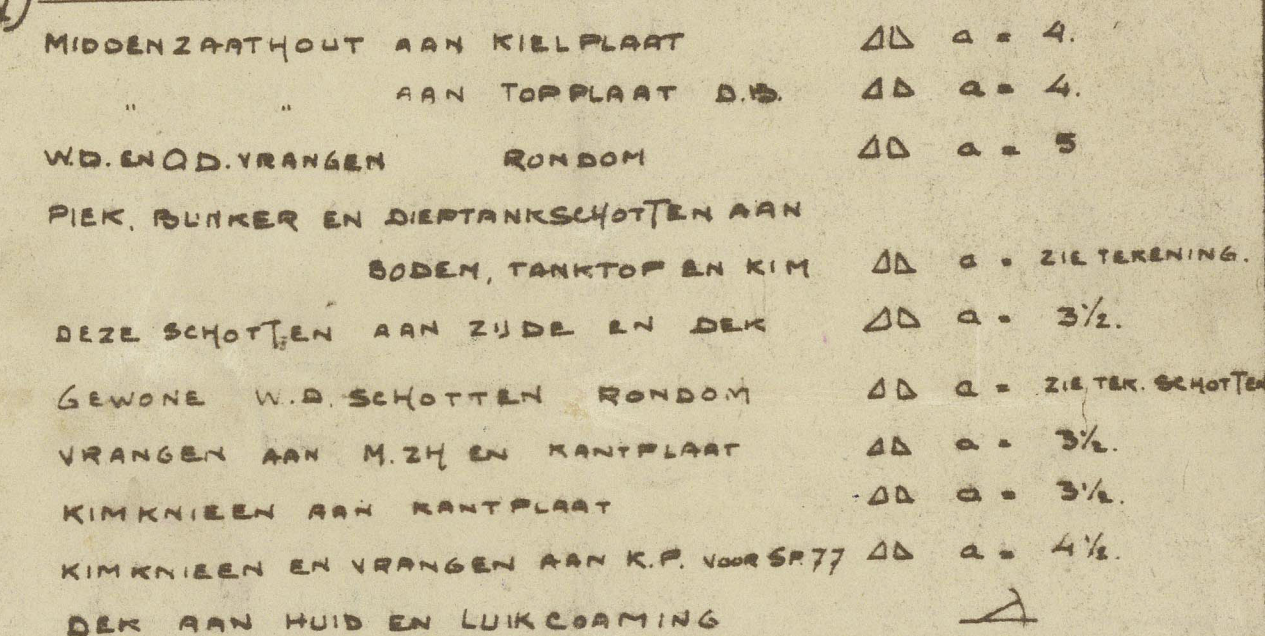 MIDDENZAATHOUT AAN KIELPLAAT ⊿⊿ a = 4.
" " AAN TOPPLAAT D.B. ⊿⊿ a = 4.
W.D. EN O D. VRANGEN RONDOM ⊿⊿ a = 5
PIEK, BUNKER EN DIEPTANKSCHOTTEN AAN
BODEM, TANKTOP EN KIM ⊿⊿ a = ZIE TEKENING.
DEZE SCHOTTEN AAN ZIJDE EN DEK ⊿⊿ a = 3½.
GEWONE W.D. SCHOTTEN RONDOM ⊿⊿ a = ZIE TEK. SCHOTTEN
VRANGEN AAN M.ZH EN KANTPLAAT ⊿⊿ a = 3½.
KIMKNIEEN AAN KANTPLAAT ⊿⊿ a = 3½.
KIMKNIEEN EN VRANGEN AAN K.P. VOOR SP. 77 ⊿⊿ a = 4½.
DEK AAN HUID EN LUIKCOAMING